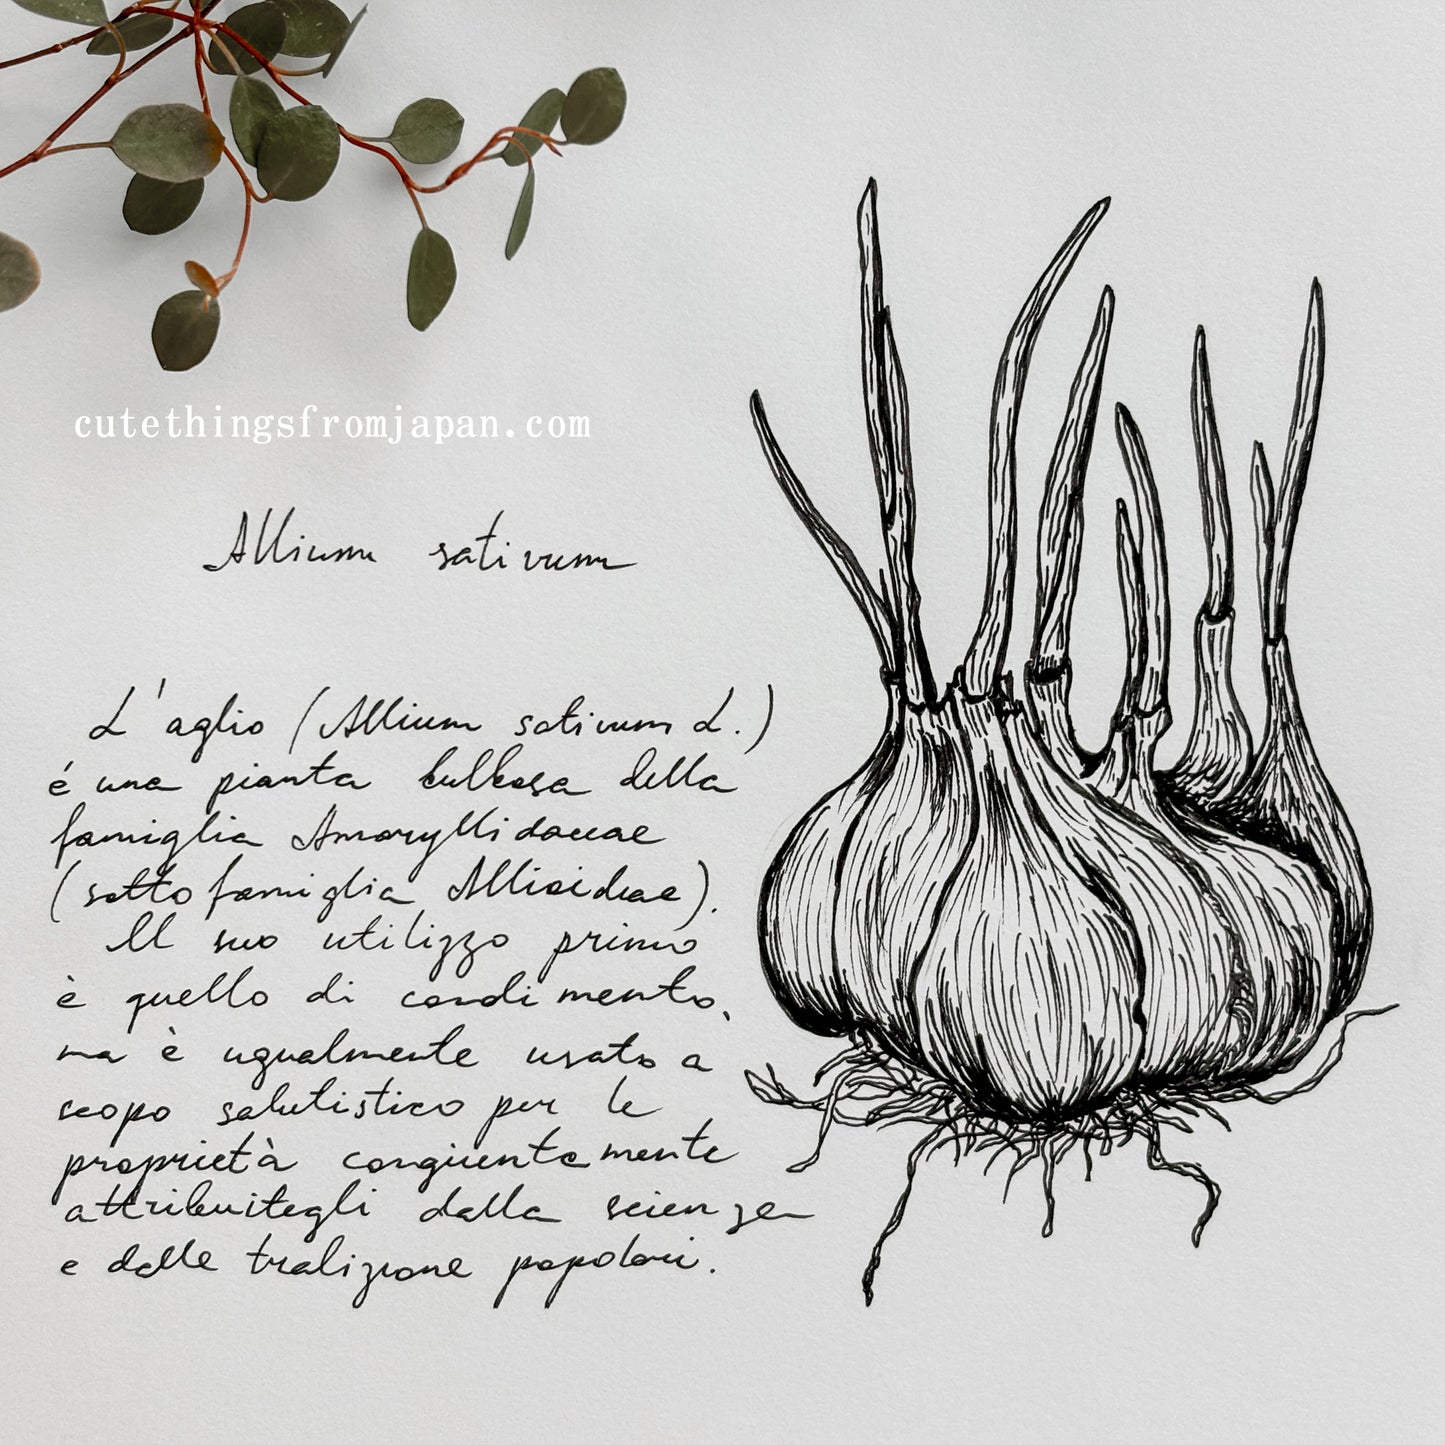 cutethingsfromjapan.com
Allium sativum
L'aglio (Allium sativum L.)
é una pianta bulbosa della
famiglia Amaryllidaceae
(sottofamiglia Allioideae).
Il suo utilizzo primo
è quello di condimento,
ma è ugualmente usato a
scopo salutistico per le
proprietà congruentemente
attribuitegli dalla scienza
e dalle tradizione popolari.